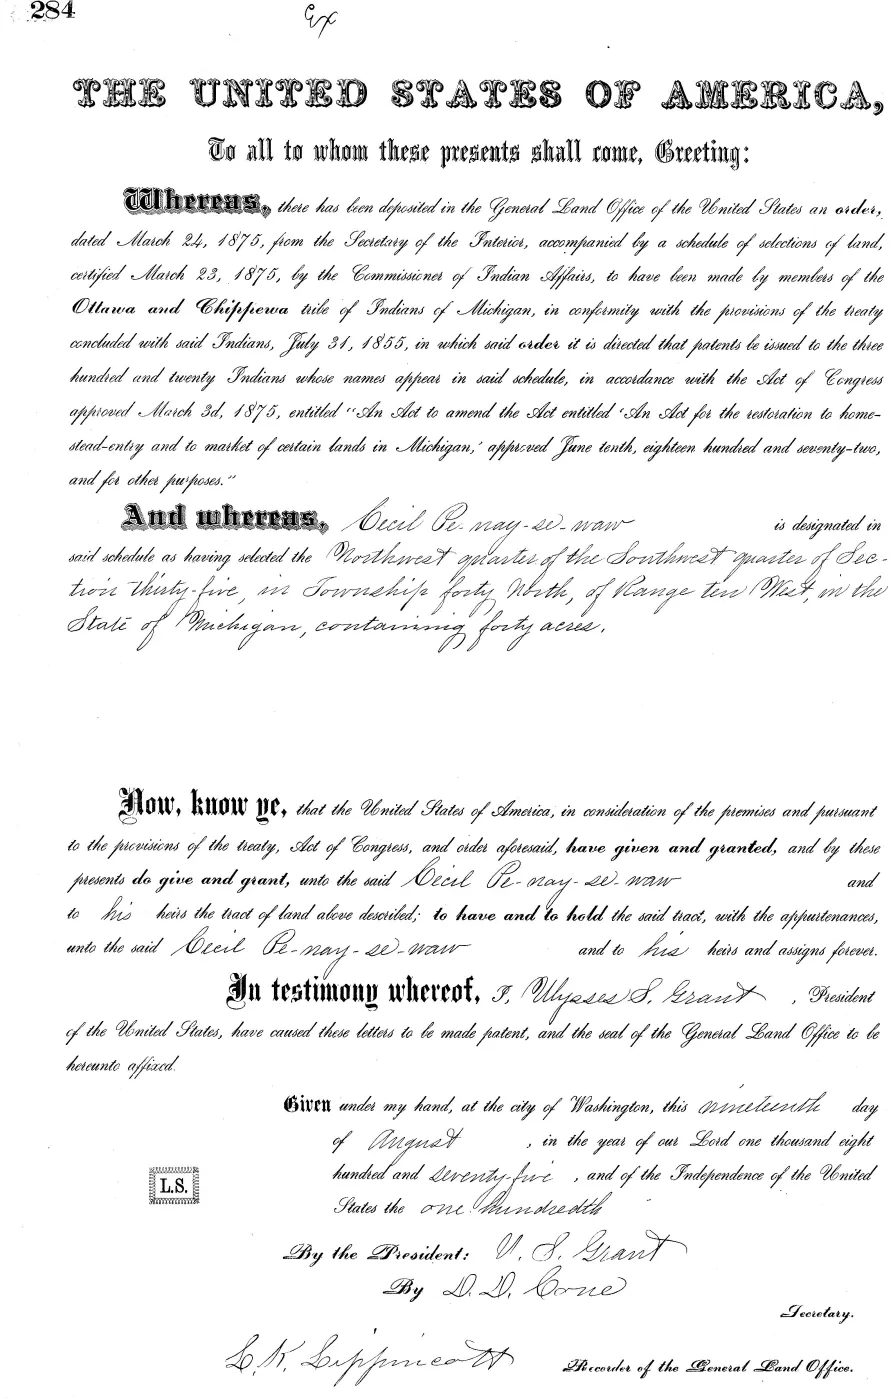 284
Ex
THE UNITED STATES OF AMERICA,
To all to whom these presents shall come, Greeting:
Whereas, there has been deposited in the General Land Office of the United States an order,
dated March 24, 1875, from the Secretary of the Interior, accompanied by a schedule of selections of land,
certified March 23, 1875, by the Commissioner of Indian Affairs, to have been made by members of the
Ottawa and Chippewa tribe of Indians of Michigan, in conformity with the provisions of the treaty
concluded with said Indians, July 31, 1855, in which said order it is directed that patents be issued to the three
hundred and twenty Indians whose names appear in said schedule, in accordance with the Act of Congress
approved March 3d, 1875, entitled "An Act to amend the Act entitled 'An Act for the restoration to home-
stead-entry and to market of certain lands in Michigan,' approved June tenth, eighteen hundred and seventy-two,
and for other purposes."
And whereas, Cecil Pe-nay-se-waw is designated in
said schedule as having selected the Northwest quarter of the Southwest quarter of Sec-
tion thirty-five, in Township forty North, of Range ten West, in the
State of Michigan, containing forty acres.
Now, know ye, that the United States of America, in consideration of the premises and pursuant
to the provisions of the treaty, Act of Congress, and order aforesaid, have given and granted, and by these
presents do give and grant, unto the said Cecil Pe-nay-se-waw and
to his heirs the tract of land above described; to have and to hold the said tract, with the appurtenances,
unto the said Cecil Pe-nay-se-waw and to his heirs and assigns forever.
In testimony whereof, I, Ulysses S. Grant, President
of the United States, have caused these letters to be made patent, and the seal of the General Land Office to be
hereunto affixed.
Given under my hand, at the city of Washington, this nineteenth day
of August, in the year of our Lord one thousand eight
hundred and seventy-five, and of the Independence of the United
States the one hundredth
L.S.
By the President: U. S. Grant
By D. D. Cone
Secretary.
L. K. Lippincott Recorder of the General Land Office.